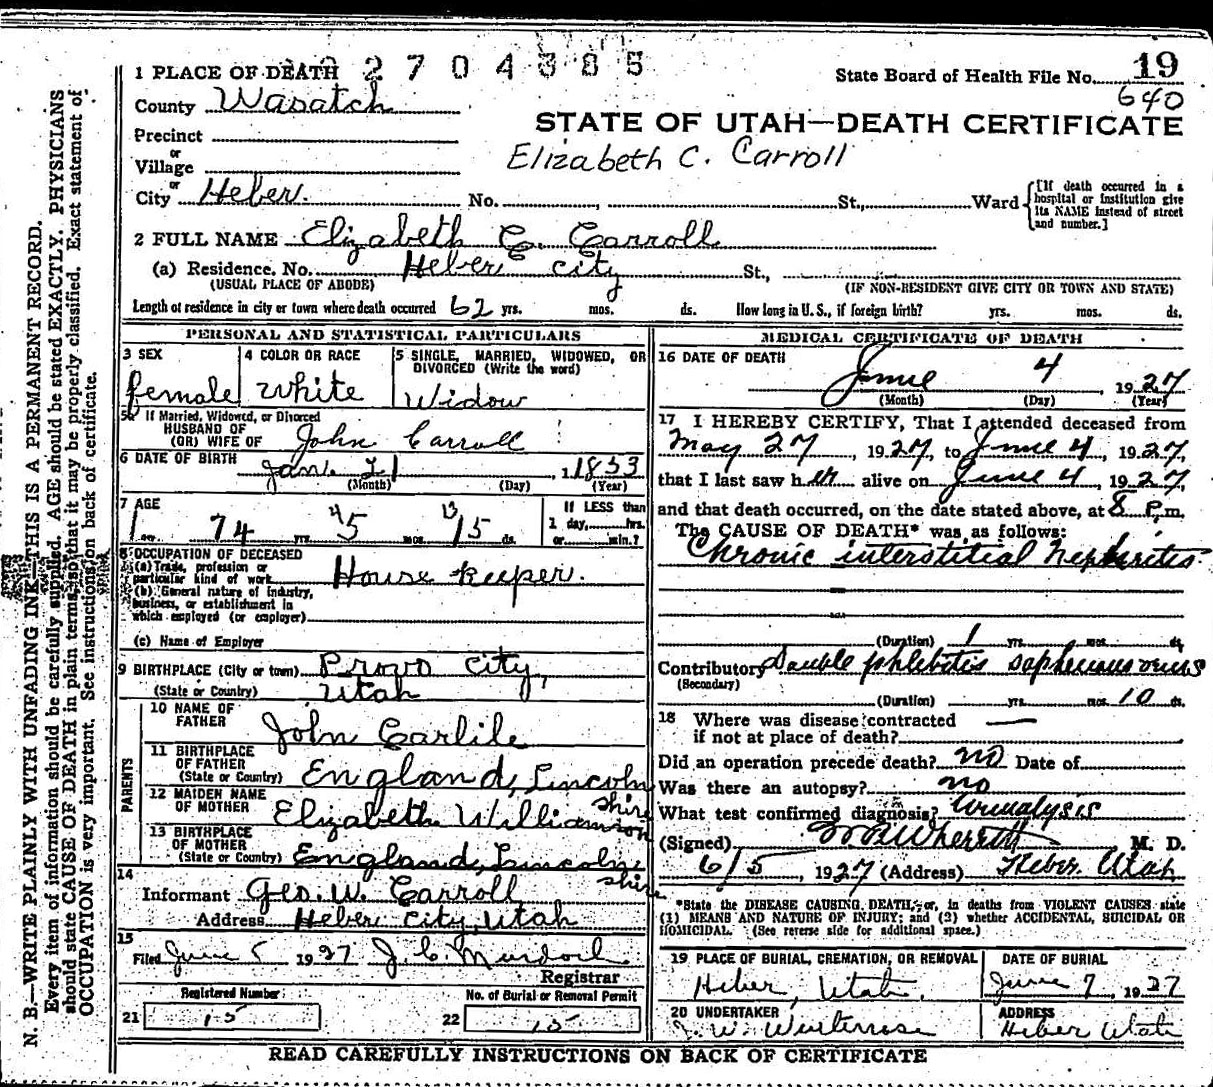 N. B.—WRITE PLAINLY WITH UNFADING INK—THIS IS A PERMANENT RECORD.
Every item of information should be carefully supplied. AGE should be stated EXACTLY. PHYSICIANS
should state CAUSE OF DEATH in plain terms, so that it may be properly classified. Exact statement of
OCCUPATION is very important. See instructions on back of certificate.
2704385
State Board of Health File No. 19
640
STATE OF UTAH—DEATH CERTIFICATE
Elizabeth C. Carroll
1 PLACE OF DEATH
County Wasatch
Precinct
or
Village
or
City Heber. No. , St., Ward
[If death occurred in a
hospital or institution give
its NAME instead of street
and number.]
2 FULL NAME Elizabeth C. Carroll
(a) Residence. No. Heber City St.,
(USUAL PLACE OF ABODE) (IF NON-RESIDENT GIVE CITY OR TOWN AND STATE)
Length of residence in city or town where death occurred 62 yrs. mos. ds. How long in U. S., if foreign birth? yrs. mos. ds.
PERSONAL AND STATISTICAL PARTICULARS
3 SEX
female
4 COLOR OR RACE
White
5 SINGLE, MARRIED, WIDOWED, OR
DIVORCED (Write the word)
Widow
5a If Married, Widowed, or Divorced
HUSBAND OF
(OR) WIFE OF John Carroll
6 DATE OF BIRTH Jan. 21 1853
(Month) (Day) (Year)
7 AGE
74 yrs. 4 5 mos. 13 15 ds.
If LESS than
1 day, hrs.
or min.?
8 OCCUPATION OF DECEASED
(a) Trade, profession or
particular kind of work House Keeper.
(b) General nature of industry,
business, or establishment in
which employed (or employer)
(c) Name of Employer
9 BIRTHPLACE (City or town) Provo City,
(State or Country) Utah
PARENTS
10 NAME OF
FATHER John Carlile
11 BIRTHPLACE
OF FATHER
(State or Country) England, Lincoln
shire
12 MAIDEN NAME
OF MOTHER Elizabeth Williamson
13 BIRTHPLACE
OF MOTHER
(State or Country) England, Lincoln
shire
14
Informant Geo. W. Carroll
Address Heber City, Utah
15
Filed June 5 1927 J. C. Murdock
Registrar
Registered Number
21 15
No. of Burial or Removal Permit
22 15
MEDICAL CERTIFICATE OF DEATH
16 DATE OF DEATH
June 4, 1927
(Month) (Day) (Year)
17 I HEREBY CERTIFY, That I attended deceased from
May 27, 1927, to June 4, 1927,
that I last saw her alive on June 4, 1927,
and that death occurred, on the date stated above, at 8 P.m.
The CAUSE OF DEATH* was as follows:
Chronic interstitial Nephritis
(Duration) 1 yrs. mos. ds.
Contributory Double phlebitis saphenous veins
(Secondary)
(Duration) yrs. mos. 10 ds.
18 Where was disease contracted
if not at place of death?
Did an operation precede death? no Date of
Was there an autopsy? no
What test confirmed diagnosis? Urinalysis
(Signed) Wherritt M. D.
6/5, 1927 (Address) Heber, Utah
*State the DISEASE CAUSING DEATH, or, in deaths from VIOLENT CAUSES state
(1) MEANS AND NATURE OF INJURY; and (2) whether ACCIDENTAL, SUICIDAL OR
HOMICIDAL. (See reverse side for additional space.)
19 PLACE OF BURIAL, CREMATION, OR REMOVAL
Heber, Utah.
DATE OF BURIAL
June 7, 1927
20 UNDERTAKER
J. W. Winterrose
ADDRESS
Heber Utah
READ CAREFULLY INSTRUCTIONS ON BACK OF CERTIFICATE